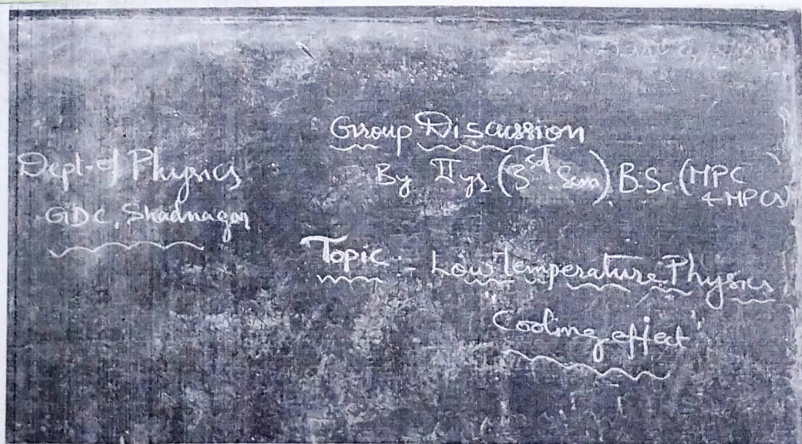 Dept. of Physics
GDC, Shadnagar
Group Discussion
By II yr (3rd Sem) B.Sc (MPC
& MPCs)
Topic - Low Temperature Physics
Cooling effect"